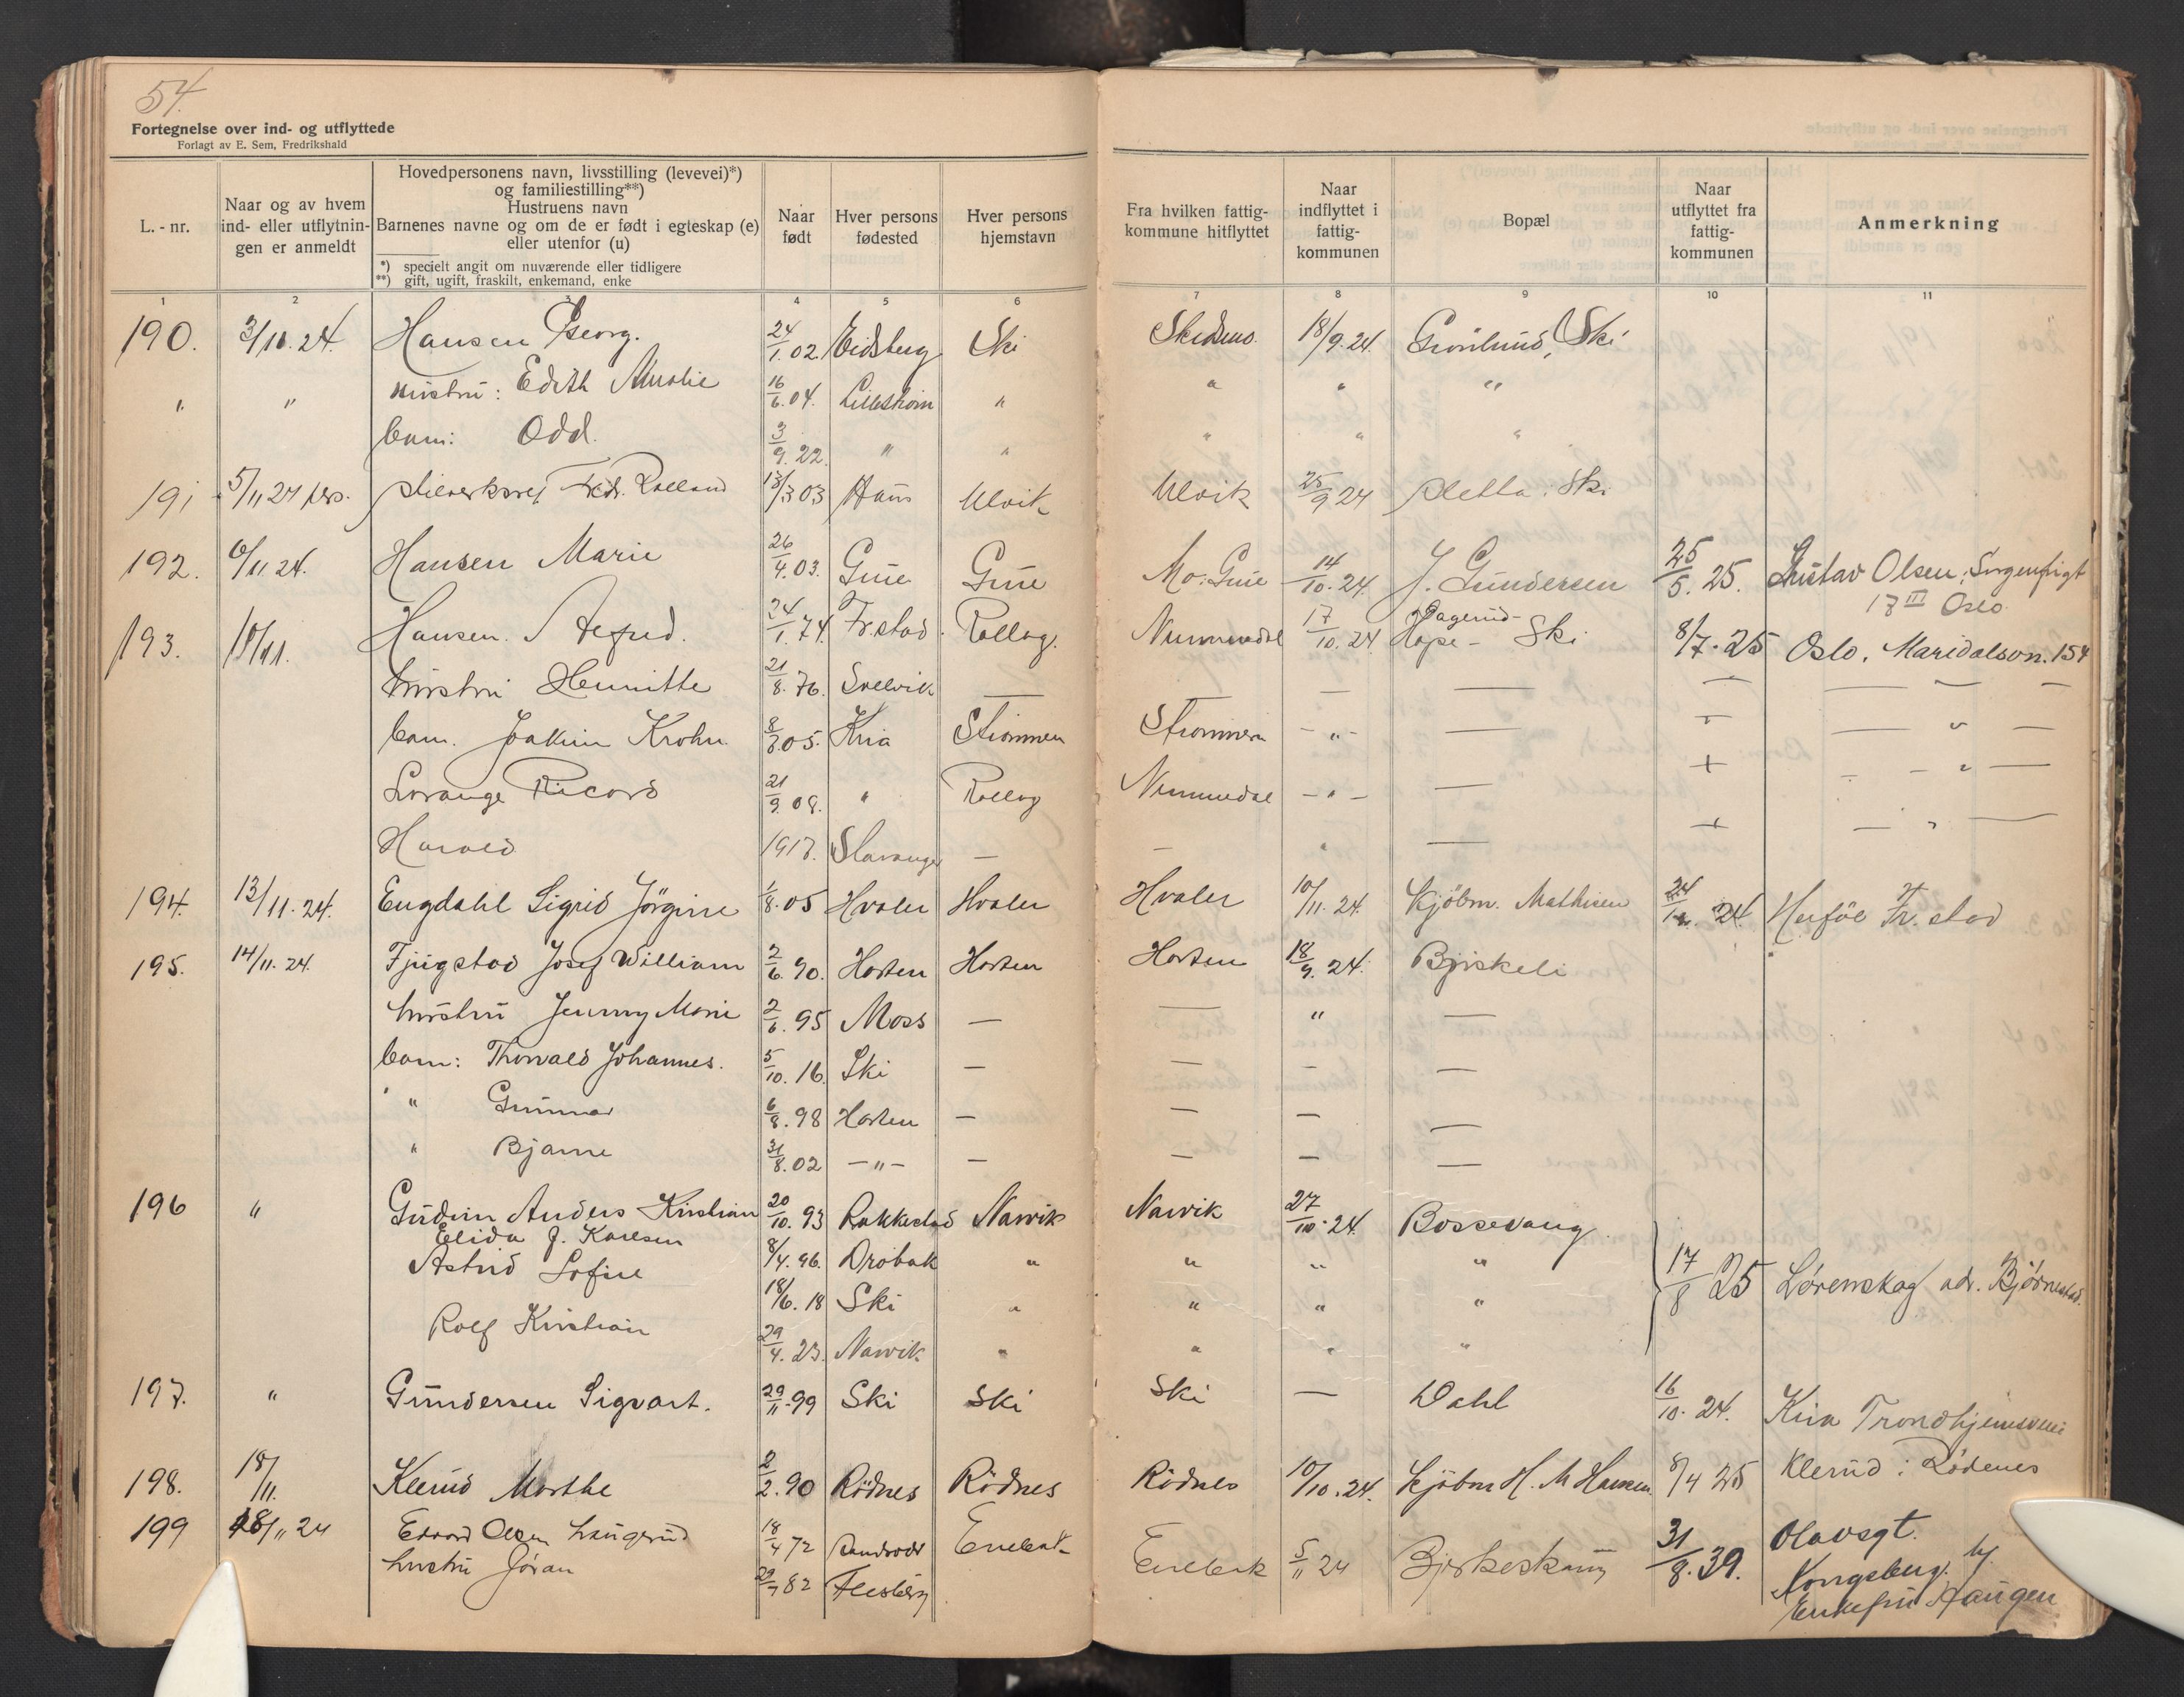 54.
Fortegnelse over ind- og utflyttede
Forlagt av E. Sem, Fredrikshald
L.-nr.
Naar og av hvem ind- eller utflytningen er anmeldt
Hovedpersonens navn, livsstilling (levevei)*) og familiestilling**)
Hustruens navn
Barnenes navne og om de er født i egteskap (e) eller utenfor (u)
*) specielt angit om nuværende eller tidligere
**) gift, ugift, fraskilt, enkemand, enke
Naar født
Hver persons fødested
Hver persons hjemstavn
Fra hvilken fattigkommune hitflyttet
Naar indflyttet i fattigkommunen
Bopæl
Naar utflyttet fra fattigkommunen
Anmerkning
1 2 3 4 5 6 7 8 9 10 11
190. 3/11.24. Hansen Georg. 24/1.02 Eidsberg Ski Skedsmo 18/9.24. Grönlund, Ski
" " Hustru: Edith Amalie 16/6.04. Lilleström " " " "
barn: Odd. 3/9.22. " " " " "
191 5/11 24 pers. Fredr. Rolland 13/3 03 Ulvik Ulvik 25/9 24 Sletta. Ski
192. 6/11.24. Hansen Marie 26/4.03. Grue Grue Mo. Grue 14/10.24. J. Gundersen 25/5.25. Gustav Olsen, Sorgenfrigt
17 III Oslo
193. 10/11. Hansen. Alfred. 24/1.74. Fr.stad. Rollag. Nummedal 17/10.24. Hagerud-
Hope - Ski 8/7.25 Oslo, Maridalsvn. 154
hustru Henriette 21/8.76. Svelvik — — — — — —
barn. Joakim Krohn 8/8.05. Kria Strømmen Strømmen - " - — — — " —
Lorange Ricard 21/9.08. " Rollag Nummedal - " - — — - - " —
Harald 1917. Stavanger — — " — — — " —
194. 13/11.24. Engdahl Sigrid Jörgine 1/8.05 Hvaler Hvaler Hvaler 10/11.24. Kjöbm. Mathisen 24/12.24 Herföl Fr. stad
195. 14/11.24. Fjugstad Josef William 2/6.90. Horten Horten Horten 18/9.24. Birkeli
hustru Jenny Marie 2/6.95 Moss — — " —
barn: Thorvald Johannes. 5/10.16. Ski — — — —
" Gunnar 6/8.98 Horten — — — —
" Bjarne 31/8.02 - " - — — — —
196 " Gudim Anders Kristian 20/10.93 Rakkestad Narvik Narvik 27/10.24 Bossevang.
Elida J. Karlsen 8/4.96. Drøbak " " " "
Astrid Sofie 18/6.18 Ski " " " " 17/8 25 Lörenskog adr. Björnestad.
Rolf Kristian 29/4.23. Narvik " " " "
197. " Gundersen Sigvart. 29/11.99 Ski Ski Ski — Dahl 16/10.24. Kria Trondhjemsvei
198. 18/11. Klerud Marthe 2/2.90 Rödnes Rödnes Rödnes 10/10.24. Kjöbm H. M Hansen. 8/4 25 Klerud i Rödenes
199 18/11 24 Edvard Olsen Haugerud 18/4 72 Enebak Enebak 5/11 24 Birkeskaug 31/8.39. Olavsgt.
hustru Jöran 29/7 82 Flesberg Kongsberg. h/.
Enkefru Haugen